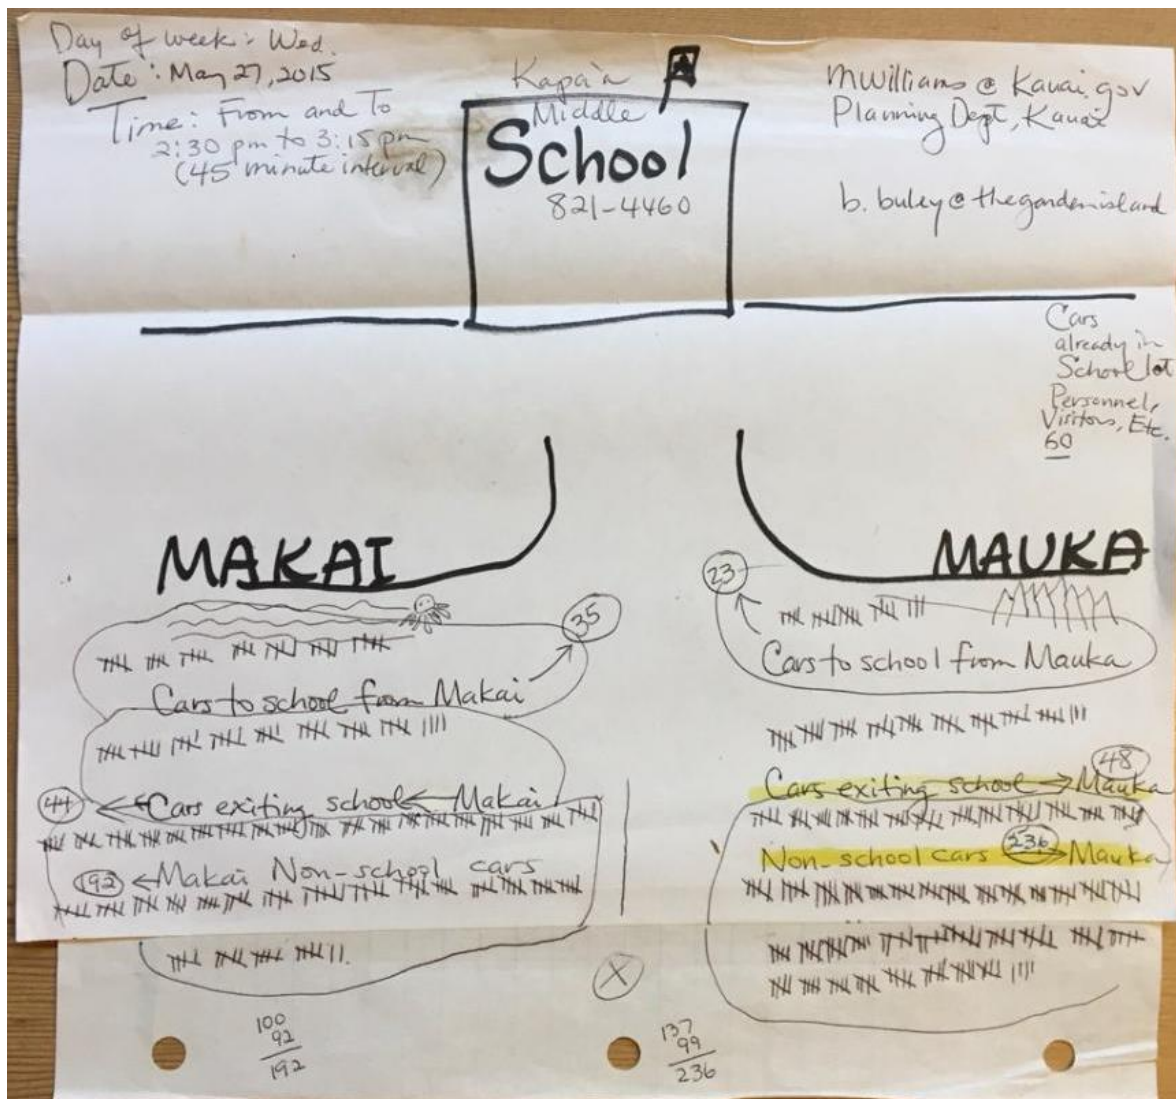 Day of week: Wed.
Date: May 27, 2015
Time: From and To
2:30 pm to 3:15 pm
(45 minute interval)
Kapa'a
Middle
School
821-4460
mwilliams@Kauai.gov
Planning Dept, Kauai
b.buley@thegardenisland
Cars
already in
School lot
Personnel,
Visitors, Etc.
60
MAKAI
35
Cars to school from Makai
44 ← Cars exiting school ← Makai
192 ← Makai Non-school cars
100
92
192
MAUKA
23
Cars to school from Mauka
48
Cars exiting school → Mauka
Non-school cars 236 → Mauka
X
137
99
236